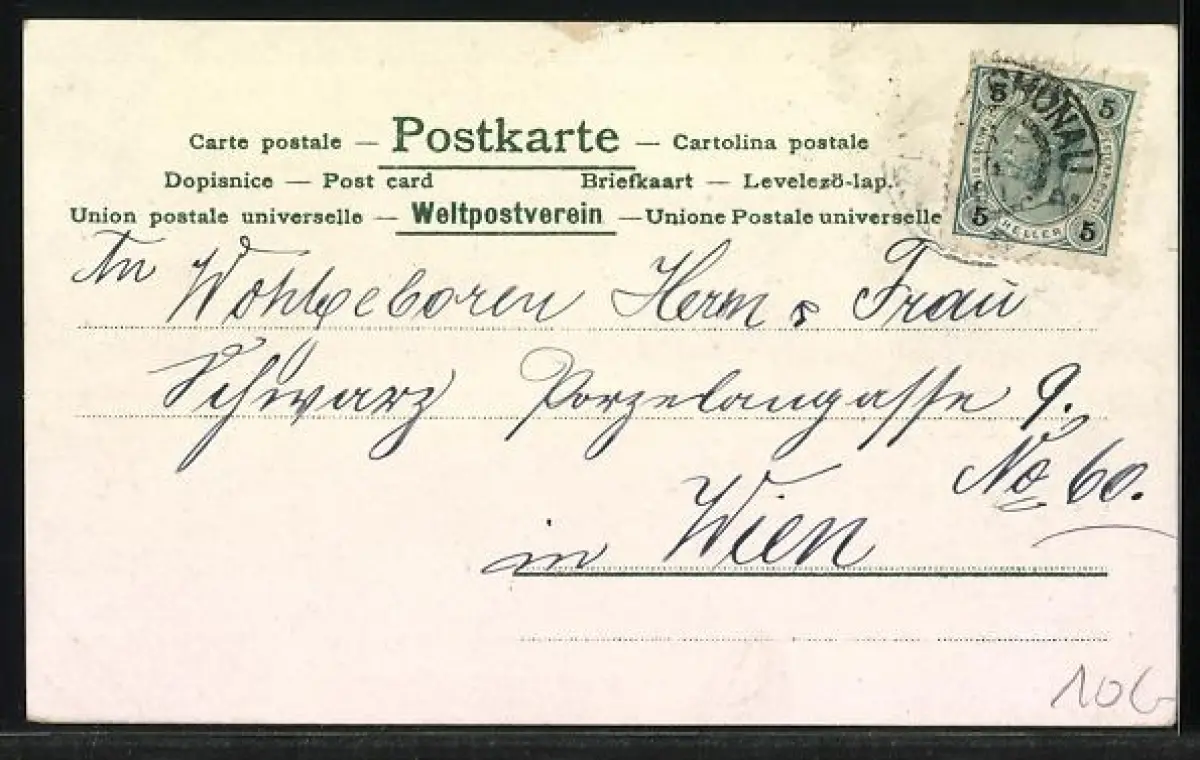 Carte postale — Postkarte — Cartolina postale
Dopisnice — Post card Briefkaart — Levelező-lap.
Union postale universelle — Weltpostverein — Unione Postale universelle
5 5
5 HELLER 5
An Wohlgeboren Herrn & Frau
Schwarz Porzelangasse 9.
No 60.
in Wien